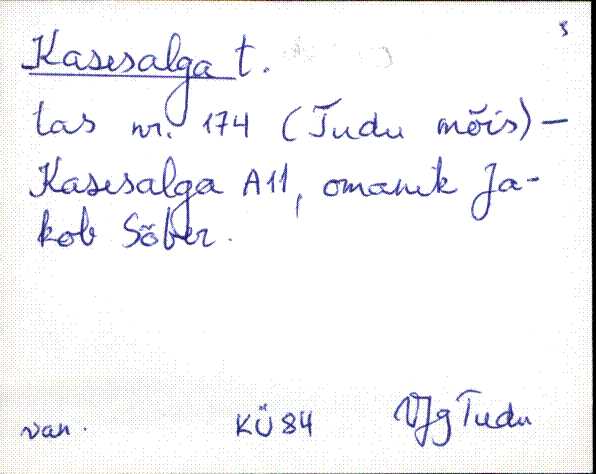 3
Kasesalga t.
tas nr. 174 (Tudu mõis) –
Kasesalga A11, omanik Ja-
kob Sõber.
van. KÜ 84 VJg Tudu